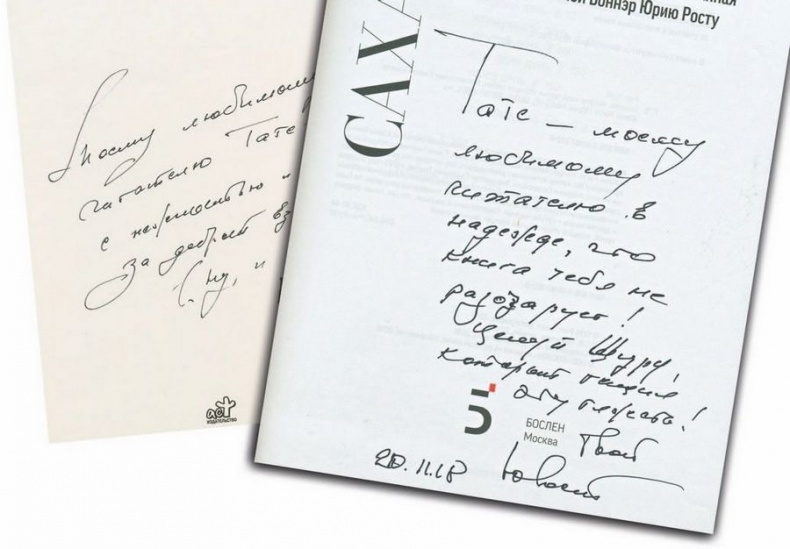 Моему любимому
читателю Тате
с нежностью и
за добрый вз
(ну, и
аст
издательство
нная
ной Боннэр Юрию Росту
САХА
Тате — моему
любимому
читателю в
надежде, что
книга тебя не
разочарует!
Целуй Шуру,
который
эту
БОСЛЕН
Москва
Твой
20.11.18